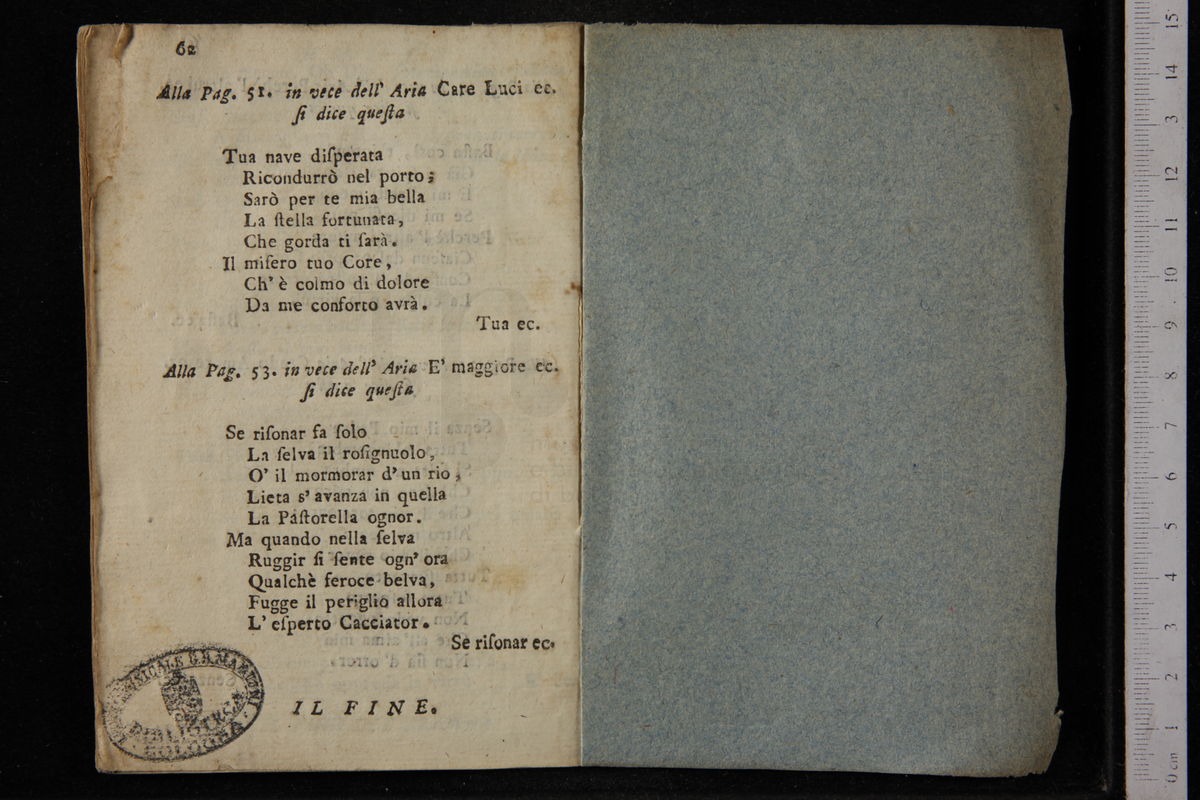 62
Alla Pag. 51. in vece dell' Aria Care Luci ec.
ſi dice queſta
Tua nave diſperata
Ricondurrò nel porto;
Sarò per te mia bella
La ſtella fortunata,
Che gorda ti ſarà.
Il miſero tuo Core,
Ch' è colmo di dolore
Da me conforto avrà.
Tua ec.
Alla Pag. 53. in vece dell' Aria E' maggiore ec.
ſi dice queſta
Se riſonar fa ſolo
La ſelva il roſignuolo,
O' il mormorar d' un rio,
Lieta s' avanza in quella
La Paſtorella ognor.
Ma quando nella ſelva
Ruggir ſi ſente ogn' ora
Qualchè feroce belva,
Fugge il periglio allora
L' eſperto Cacciator.
Se riſonar ec.
IL FINE.
MUSICALE G.B. MARTINI
BIBLIOTECA
BOLOGNA
0 cm 1 2 3 4 5 6 7 8 9 10 11 12 3 14 15